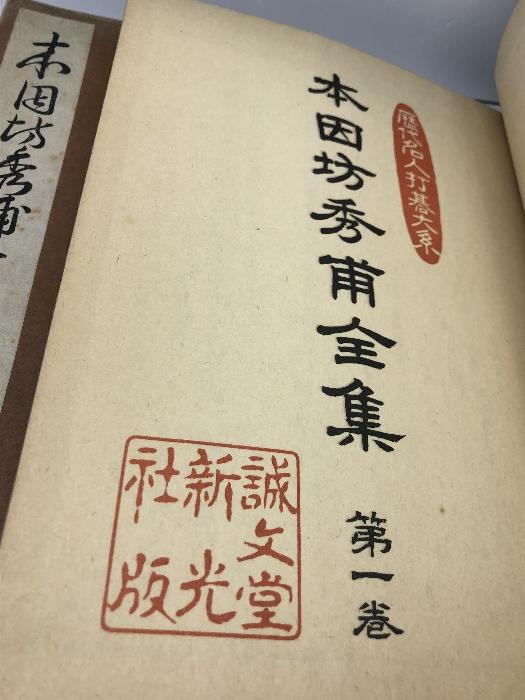 歴代名人打碁大系
本因坊秀甫全集
第一卷
誠文堂
新光
社版
本因坊秀甫